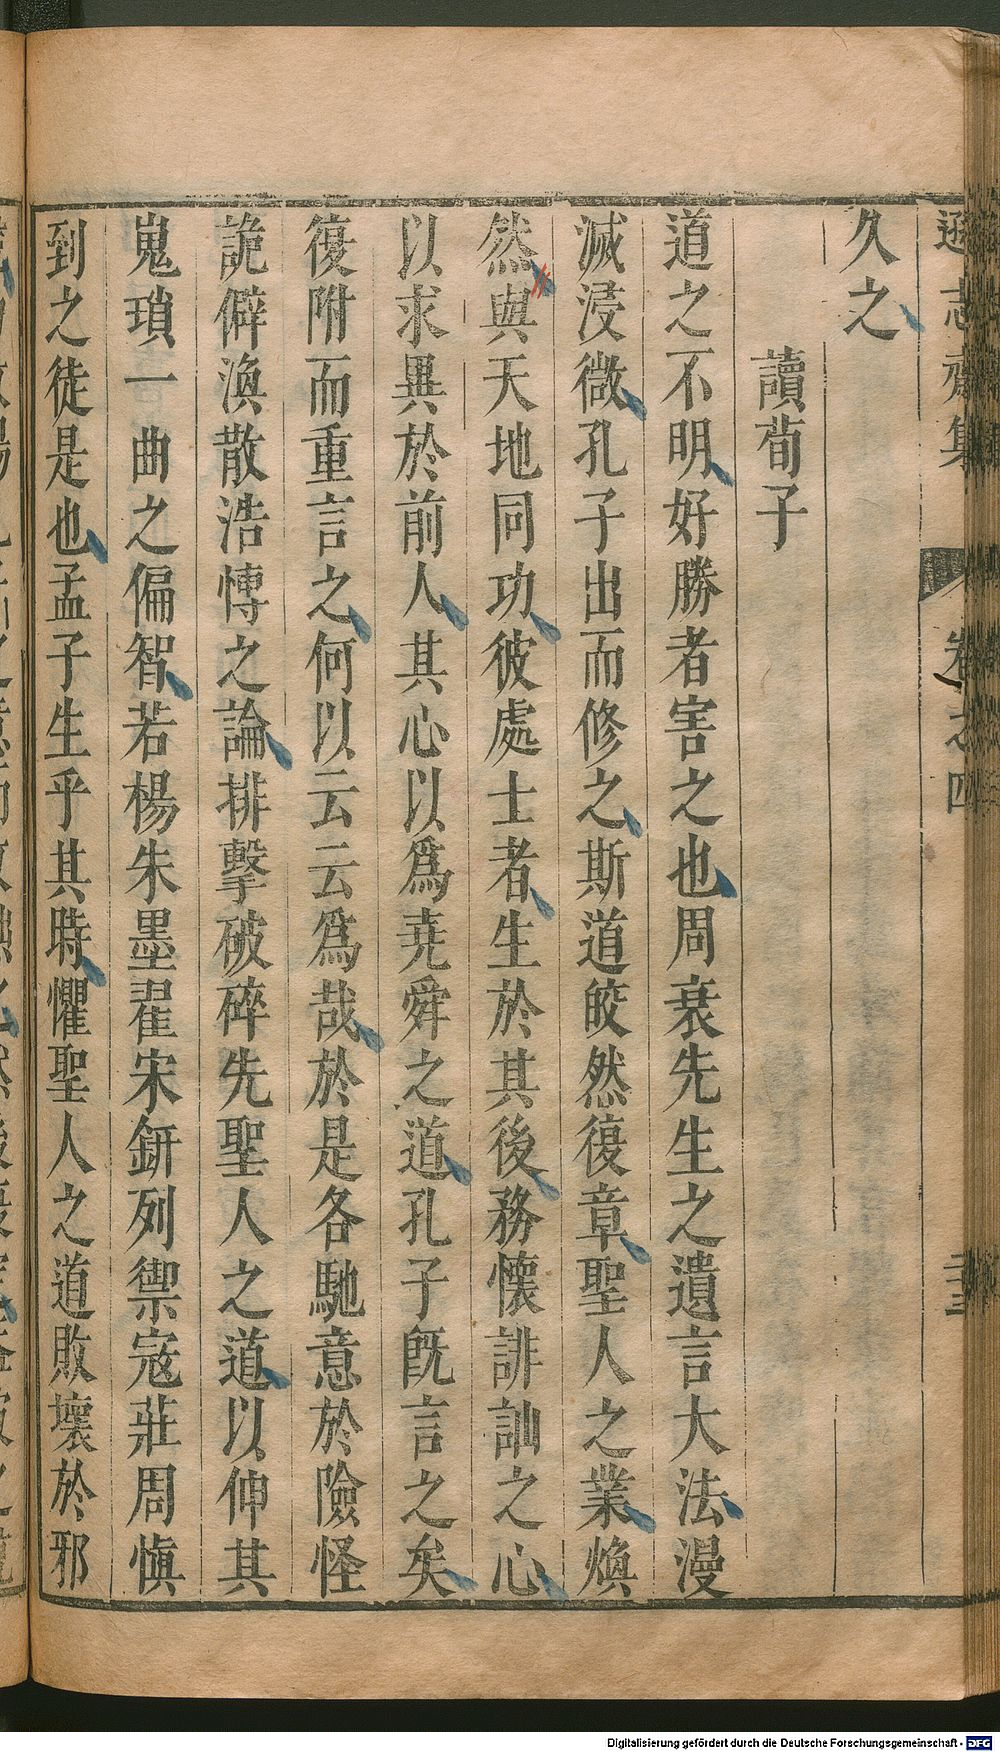 遜志齋集 卷之四 三三
久之
讀荀子
道之不明好勝者害之也周衰先生之遺言大法漫
滅浸微孔子出而修之斯道皎然復章聖人之業煥
然與天地同功彼處士者生於其後務懷誹訕之心
以求異於前人其心以爲堯舜之道孔子旣言之矣
復附而重言之何以云云爲哉於是各馳意於險怪
詭僻渙散浩慱之論排擊破碎先聖人之道以伸其
嵬瑣一曲之偏智若楊朱墨翟宋鈃列禦寇莊周愼
到之徒是也孟子生乎其時懼聖人之道敗壞於邪
Digitalisierung gefördert durch die Deutsche Forschungsgemeinschaft - DFG